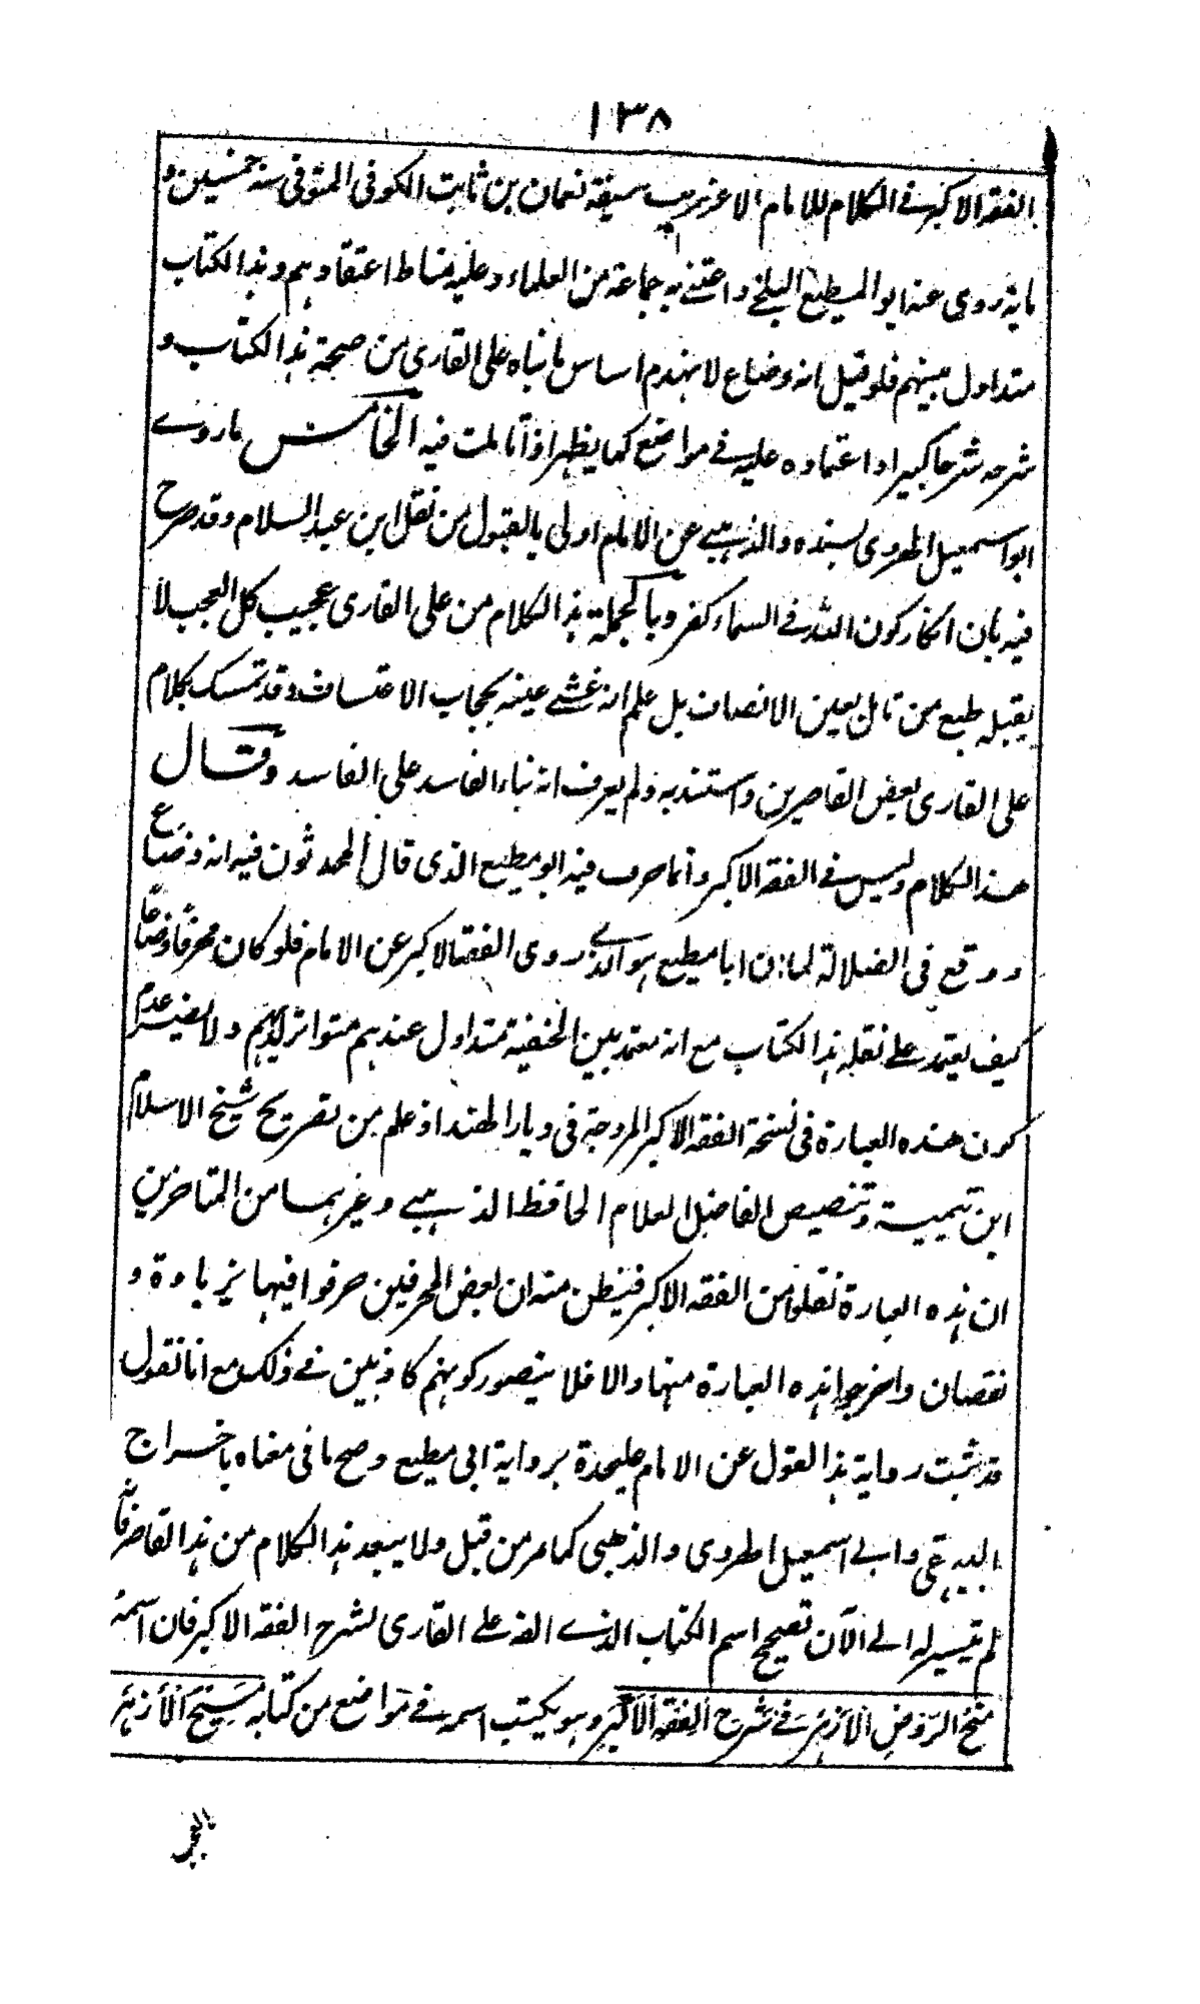 ١٣٨
الفقه الاكبر فى الكلام للامام الاعظم ابى حنيفة نعمان بن ثابت الكوفى المتوفى سنة خمسين و
ماية روى عنه ابو المطيع البلخى واعتنى به جماعة من العلماء وعليه مناط اعتقادهم وهذا الكتاب
متداول بينهم فلو قيل انه وضاع لانهدم اساس ما بناه على القارى من صحة هذا الكتاب و
شرحه شرحا كبيرا واعتماده عليه فى مواضع كما يظهر اذا تاملت فيه الخامس ما روى
ابو اسمعيل الهروى بسنده والذهبى عن الامام اولى بالقبول من نقل ابن عبد السلام وقد صرح
فيه بان انكار كون الله فى السماء كفر وبالجملة هذا الكلام من على القارى عجيب كل العجب لا
يقبله طبع من تامل بعين الانصاف بل علم انه غشى عينه بحجاب الاعتساف وقد تمسك بكلام
على القارى بعض القاصرين واستند به ولم يعرف انه بناء الفاسد على الفاسد وقال
هذا الكلام وليس فى الفقه الاكبر وانما حرف فيه ابو مطيع الذى قال المحدثون فيه انه وضاع
ووقع فى الضلالة لما ان ابا مطيع هو الذى روى الفقه الاكبر عن الامام فلو كان محرفا وضاعا
كيف يعتمد على نقله هذا الكتاب مع انه معتمد بين الحنفية متداول عندهم متواتر لديهم ولا يضر عدم
كون هذه العبارة فى نسخة الفقه الاكبر المروجة فى ديار الهند اذ علم من تصريح شيخ الاسلام
ابن تيمية وتنصيص الفاضل العلام الحافظ الذهبى وغيرهما من المتاخرين
ان هذه العبارة نقلوها من الفقه الاكبر فيظن منه ان بعض المحرفين حرفوا فيها بزيادة و
نقصان واخرجوا هذه العبارة منها والا فلا يتصور كونهم كاذبين فى ذلك مع انا نقول
قد ثبت رواية هذا القول عن الامام عليحدة برواية ابى مطيع وصح ما فى معناه باخراج
البيهقى وابى اسمعيل الهروى والذهبى كما مر من قبل ولا يبعد هذا الكلام من هذا القاصر فانه
لم يتيسر له الى الآن تصحيح اسم الكتاب الذى الفه على القارى لشرح الفقه الاكبر فان اسمه
منح الروض الازهر فى شرح الفقه الاكبر وهو يكتب اسمه فى مواضع من كتابه منح الازهر